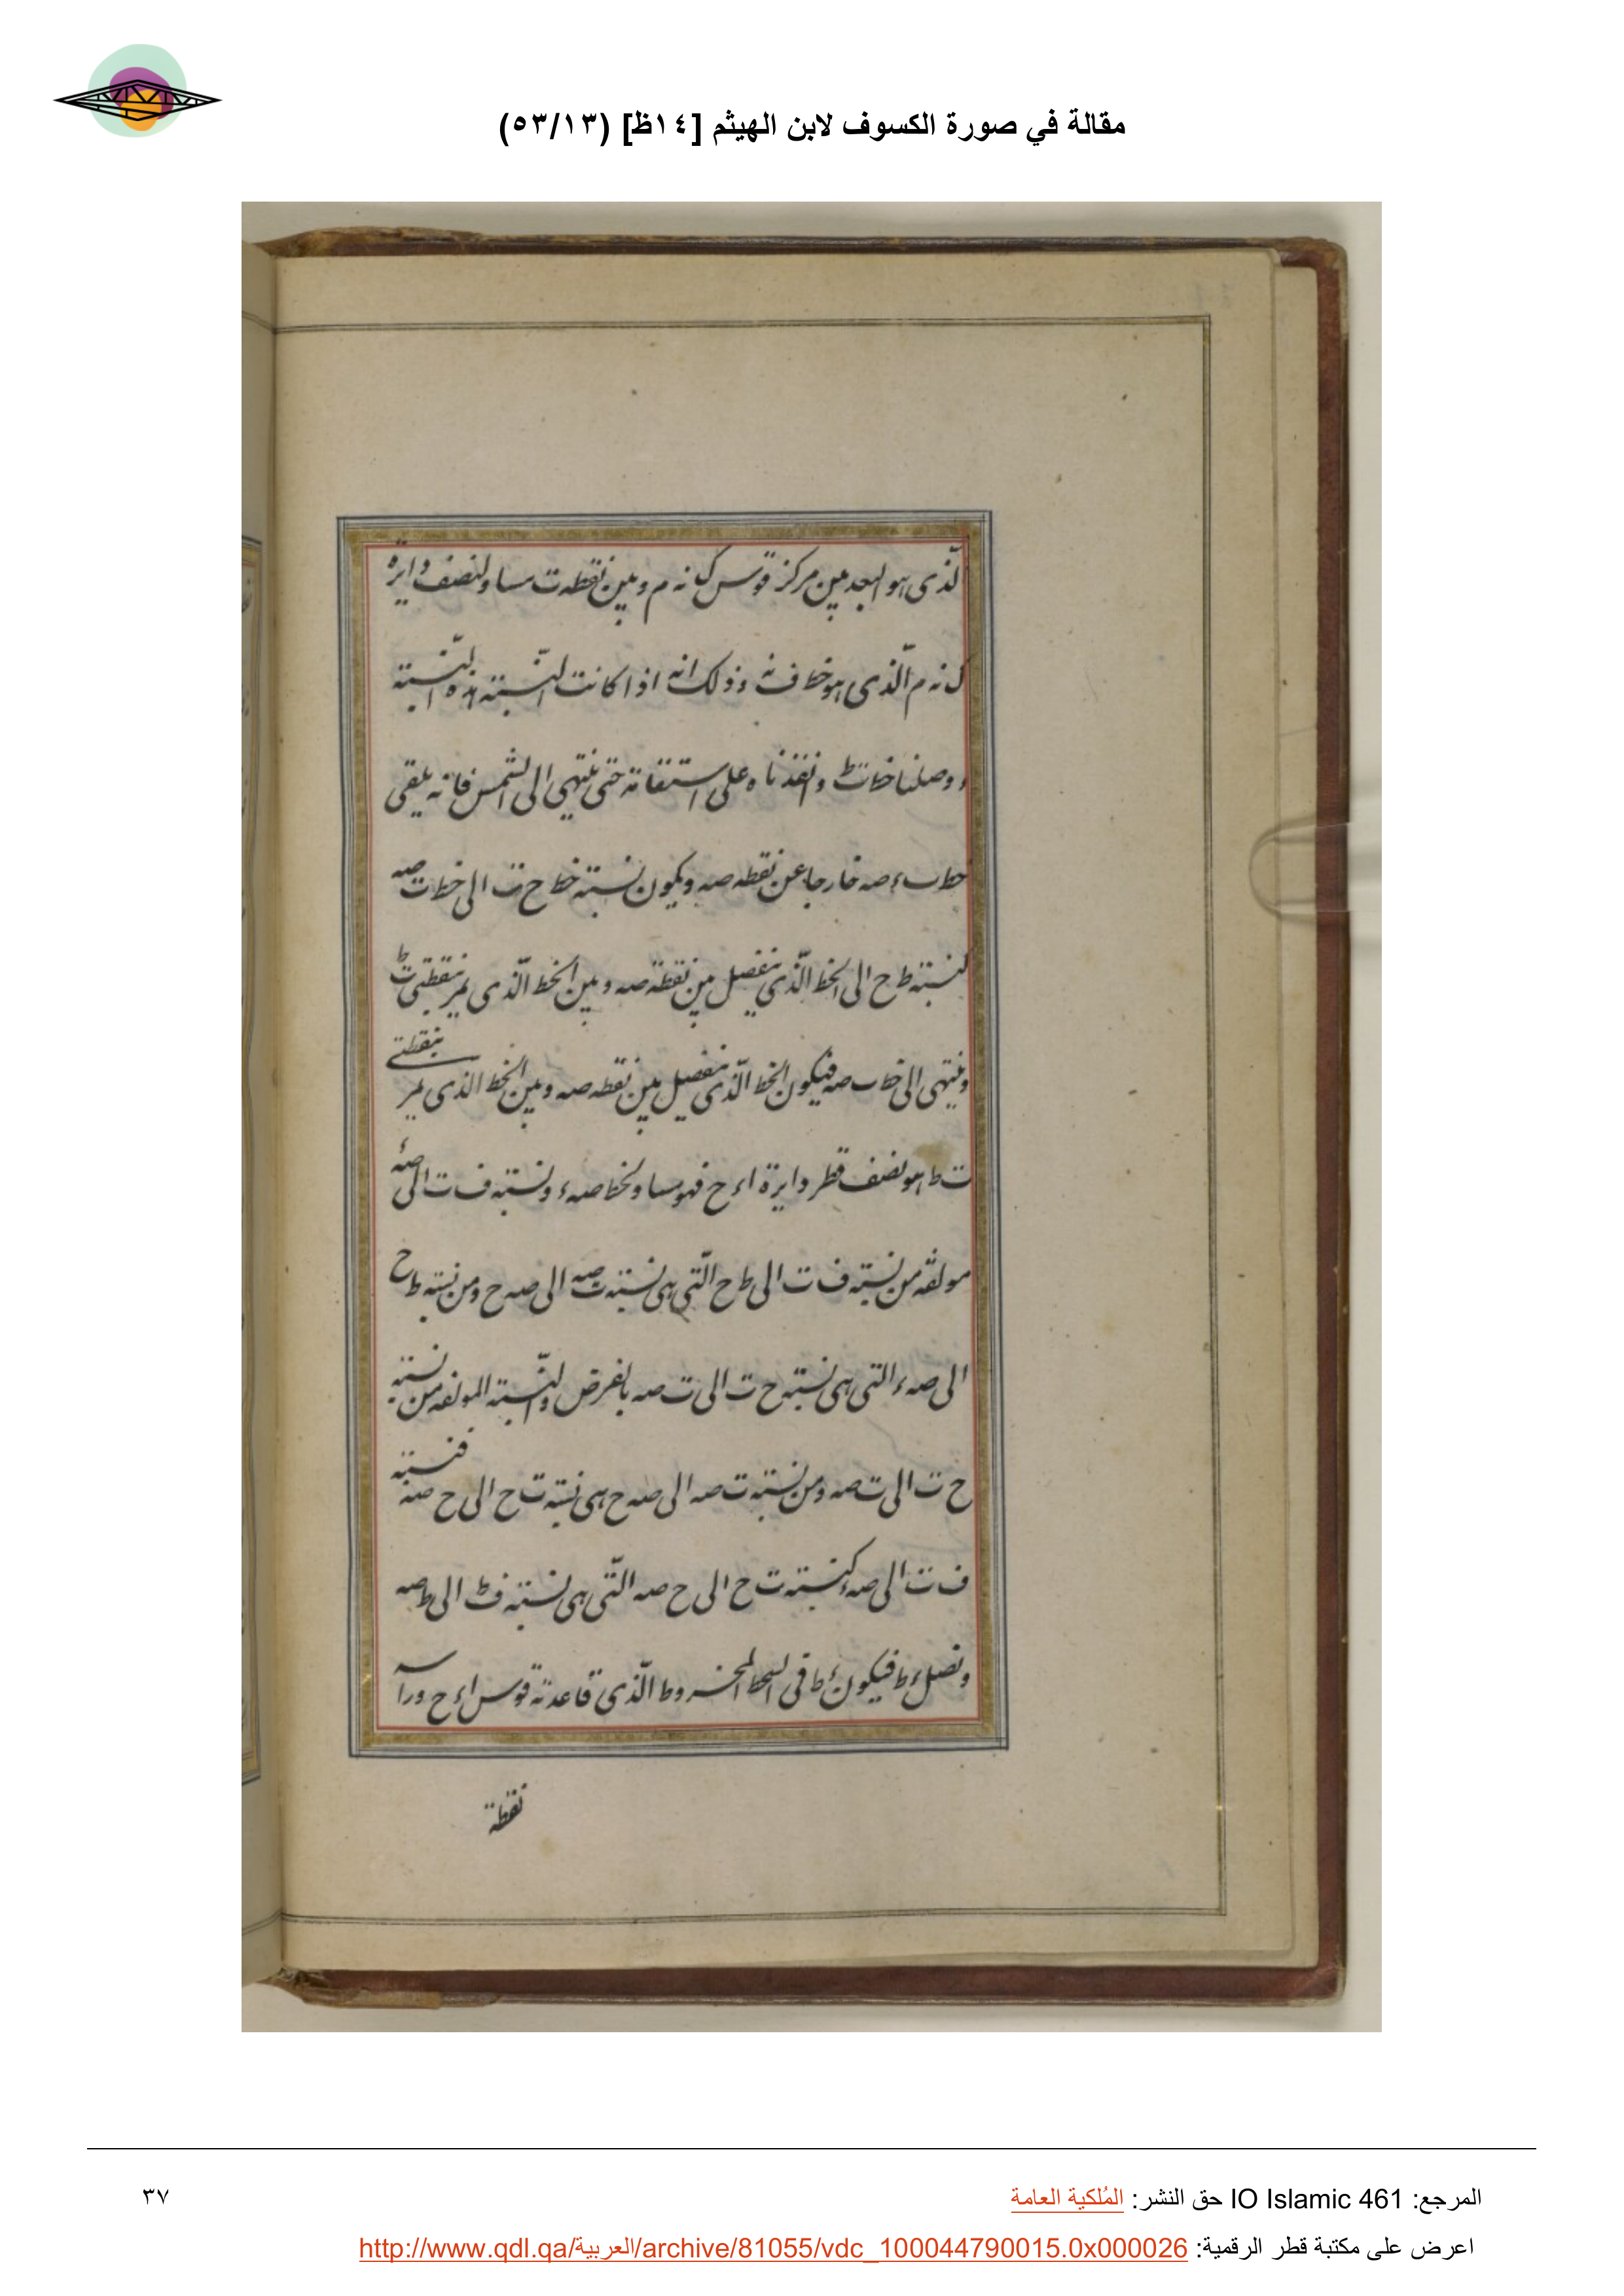 مقالة في صورة الكسوف لابن الهيثم [١٤ظ] (٥٣/١٣)
لّذى هو البعد بين مركز قوس ك نه م وبين نقطه ت مساو لنصف دايره
ك نه م الّذى هو خط ف نه وذلك انه اذا كانت النّسبته هذه النّسبته
ووصلنا خط ت ط وانفذناه على استقامته حتى ينتهي الى الشمس فانه يلقى
خط ب ء صه خارجا عن نقطه صه ويكون نسبته خط ح ت الى خط ت صه
كنسبته ط ح الى الخط الّذى ينفصل بين نقطة صه وبين الخط الّذى يمر بنقطتى ت ط
وينتهى الى خط ب صه فيكون الخط الّذى ينفصل بين نقطه صه وبين الخط الذى يمر بنقطتى
ت ط هو نصف قطر دايرة اء ح فهو مساو لخط صه ء ونسبته ف ت الى صه ء
مولفه من نسبته ف ت الى ط ح الّتى هى نسبته ت صه الى صه ح ومن نسبته ط ح
الى صه ء التى هى نسبته ح ت الى ت صه بالفرض والنّسبته المولفه من نسبته
ح ت الى ت صه ومن نسبته ت صه الى صه ح هى نسبته ت ح الى ح صه فنسبته
ف ت الى صه ء كنسبته ت ح الى ح صه الّتى هى نسبته ف ط الى ط صه
ونصل ء ط فيكون ء ط فى السطح المخروط الّذى قاعدته قوس اء ح وراسه
نقطة
المرجع: IO Islamic 461 حق النشر: المُلكية العامة
٣٧
اعرض على مكتبة قطر الرقمية: http://www.qdl.qa/العربية/archive/81055/vdc_100044790015.0x000026